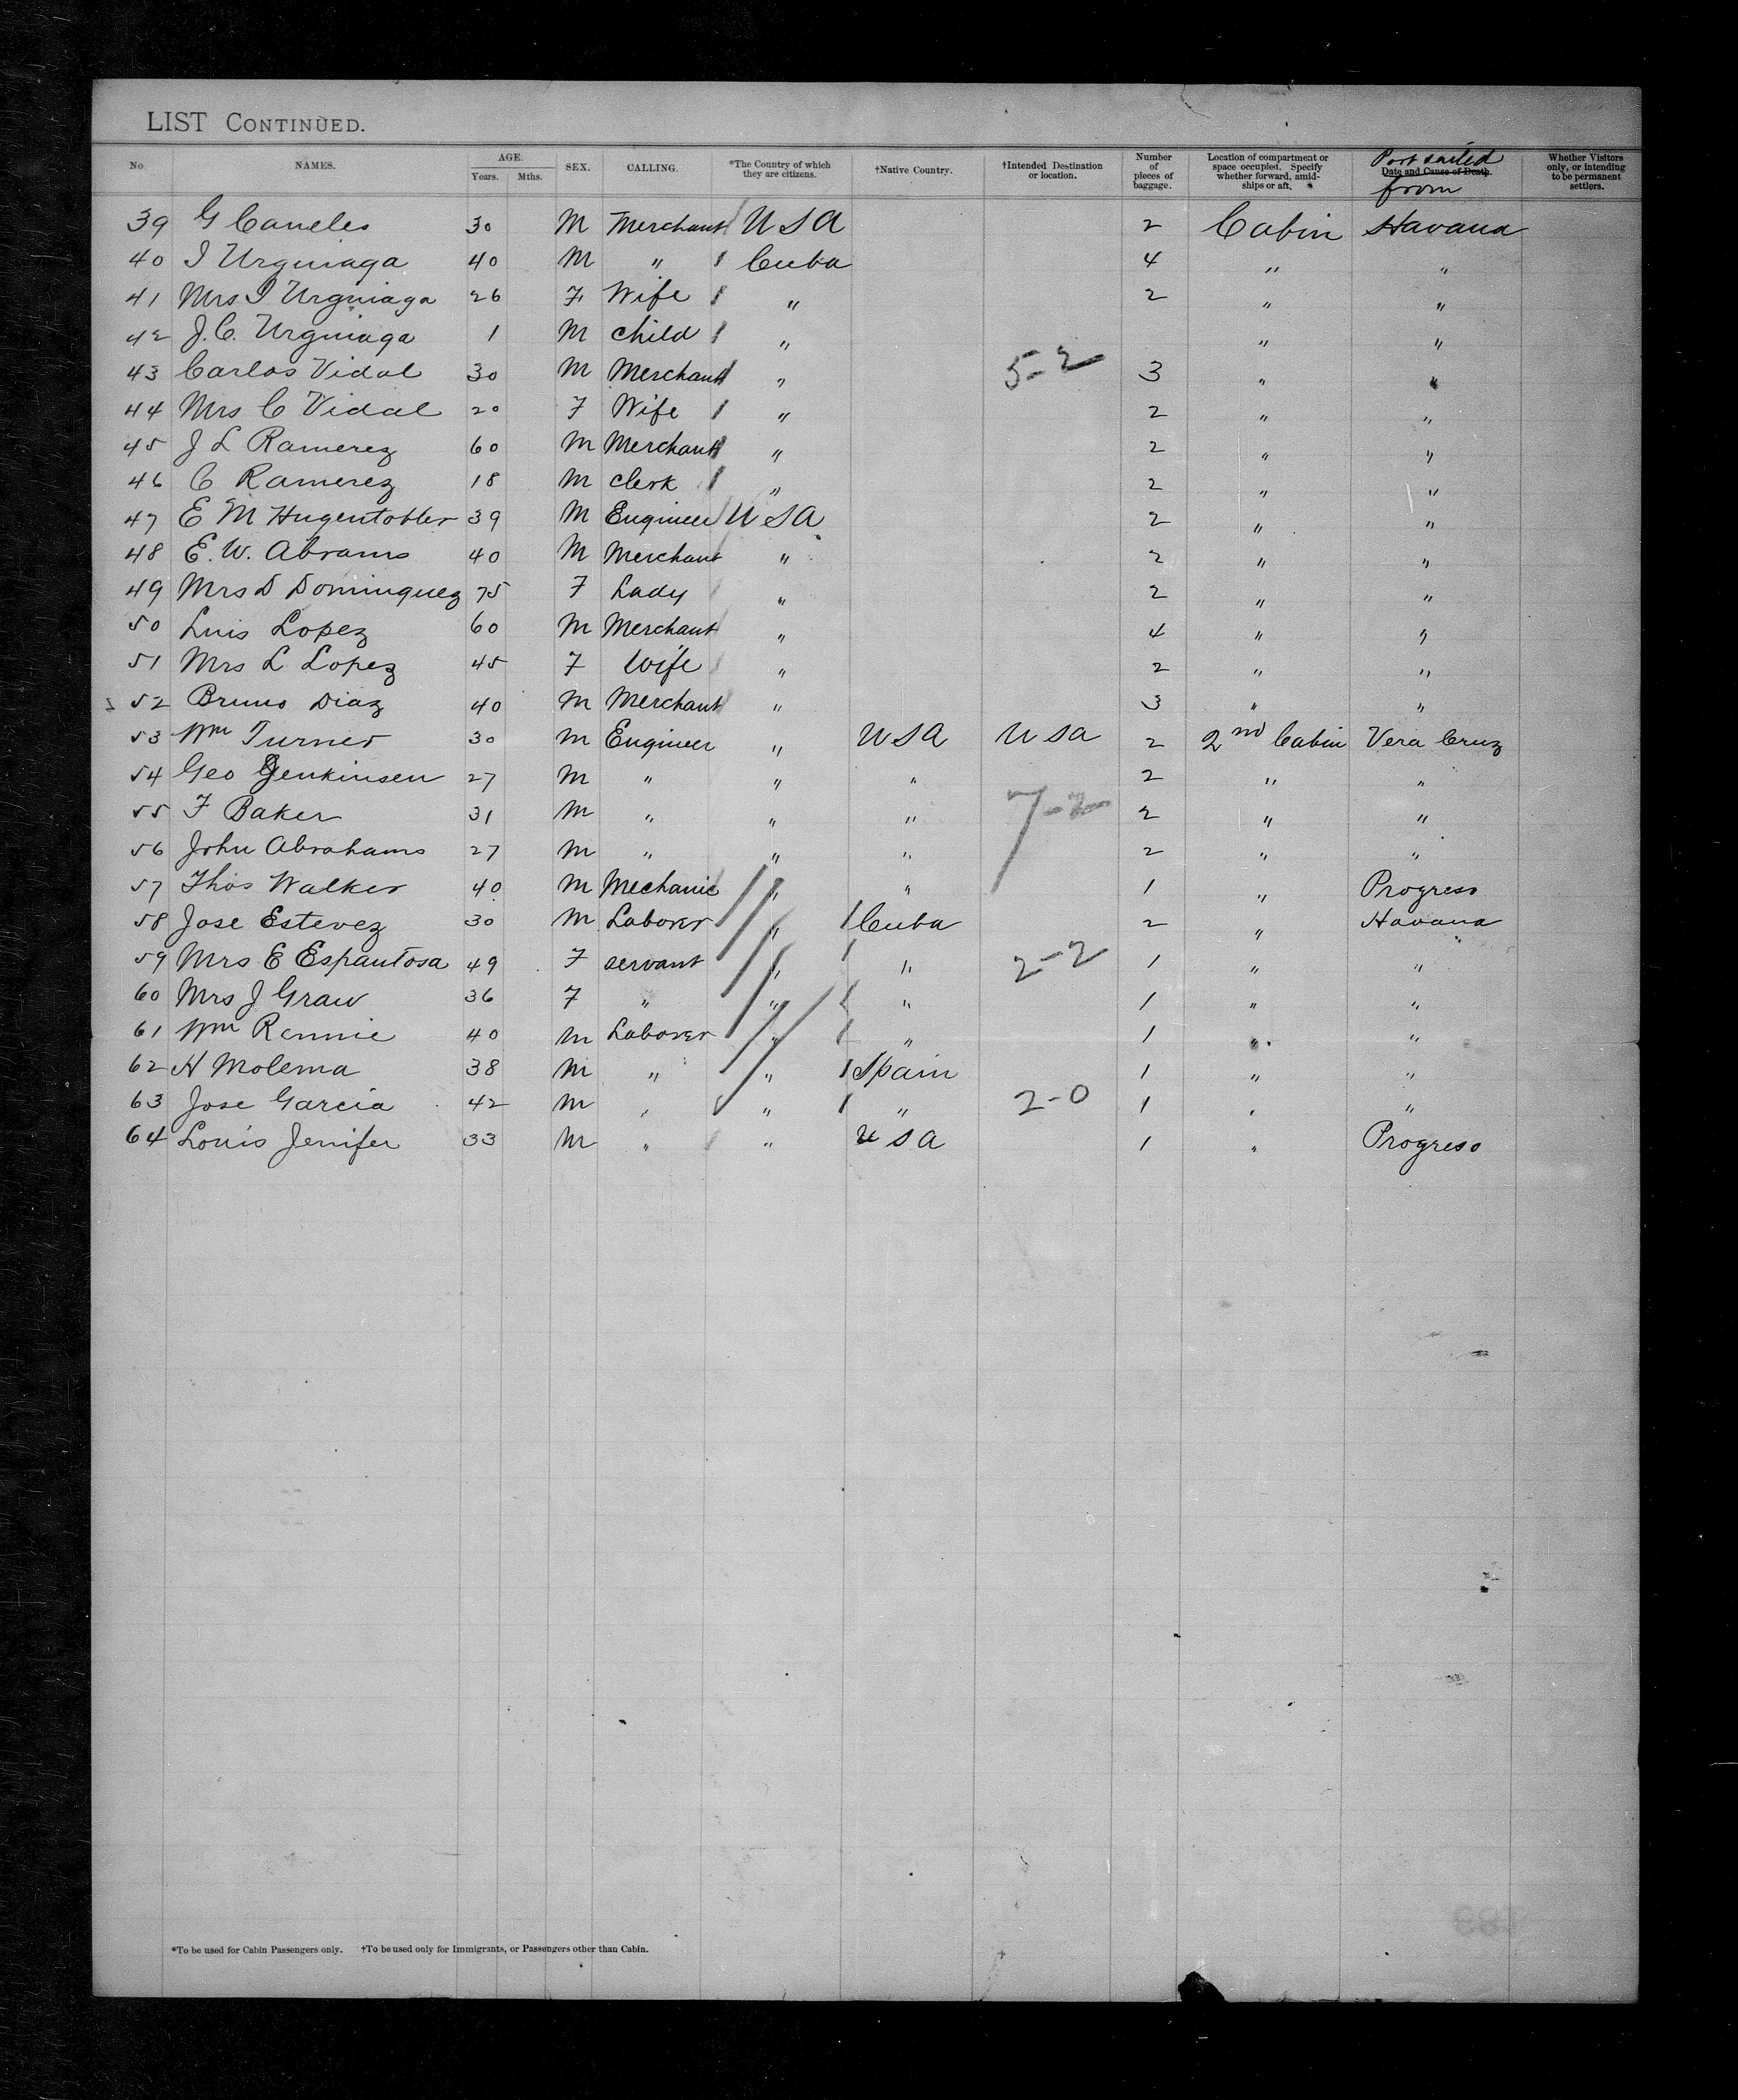 LIST CONTINUED.
No. NAMES. AGE. Years. Mths. SEX. CALLING. *The Country of which they are citizens. †Native Country. †Intended Destination or location. Number of pieces of baggage. Location of compartment or space occupied. Specify whether forward, amidships or aft. Date and Cause of Death. Port sailed from Whether Visitors only, or intending to be permanent settlers.
39 G Caneles 30 M Merchant USA 2 Cabin Havana
40 I Urguiaga 40 M " Cuba 4 " "
41 Mrs I Urguiaga 26 F Wife " 2 " "
42 J.C. Urguiaga 1 M child " " "
43 Carlos Vidal 30 M Merchant " 5-2 3 " "
44 Mrs C Vidal 20 F Wife " 2 " "
45 J L Ramerez 60 M Merchant " 2 " "
46 C Ramerez 18 M Clerk " 2 " "
47 E M Hugentobler 39 M Engineer USA 2 " "
48 E. W. Abrams 40 M Merchant " 2 " "
49 Mrs D Dominquez 75 F Lady " 2 " "
50 Luis Lopez 60 M Merchant " 4 " "
51 Mrs L Lopez 45 F Wife " 2 " "
52 Bruno Diaz 40 M Merchant " 3 " "
53 Wm Turner 30 M Engineer " USA USA 2 2nd Cabin Vera Cruz
54 Geo Jenkinsen 27 M " " " 2 " "
55 F Baker 31 M " " " 7-2 2 " "
56 John Abrahams 27 M " " " 2 " "
57 Thos Walker 40 M Mechanic " " 1 " Progreso
58 Jose Estevez 30 M Laborer " Cuba 2 " Havana
59 Mrs E Espantosa 49 F servant " " 2-2 1 " "
60 Mrs J Graw 36 F " " " 1 " "
61 Wm Rennie 40 M Laborer " " 1 " "
62 H Molema 38 M " " Spain 1 " "
63 Jose Garcia 42 M " " " 2-0 1 " "
64 Louis Jenifer 33 M " " USA 1 " Progreso
*To be used for Cabin Passengers only. †To be used only for Immigrants, or Passengers other than Cabin.